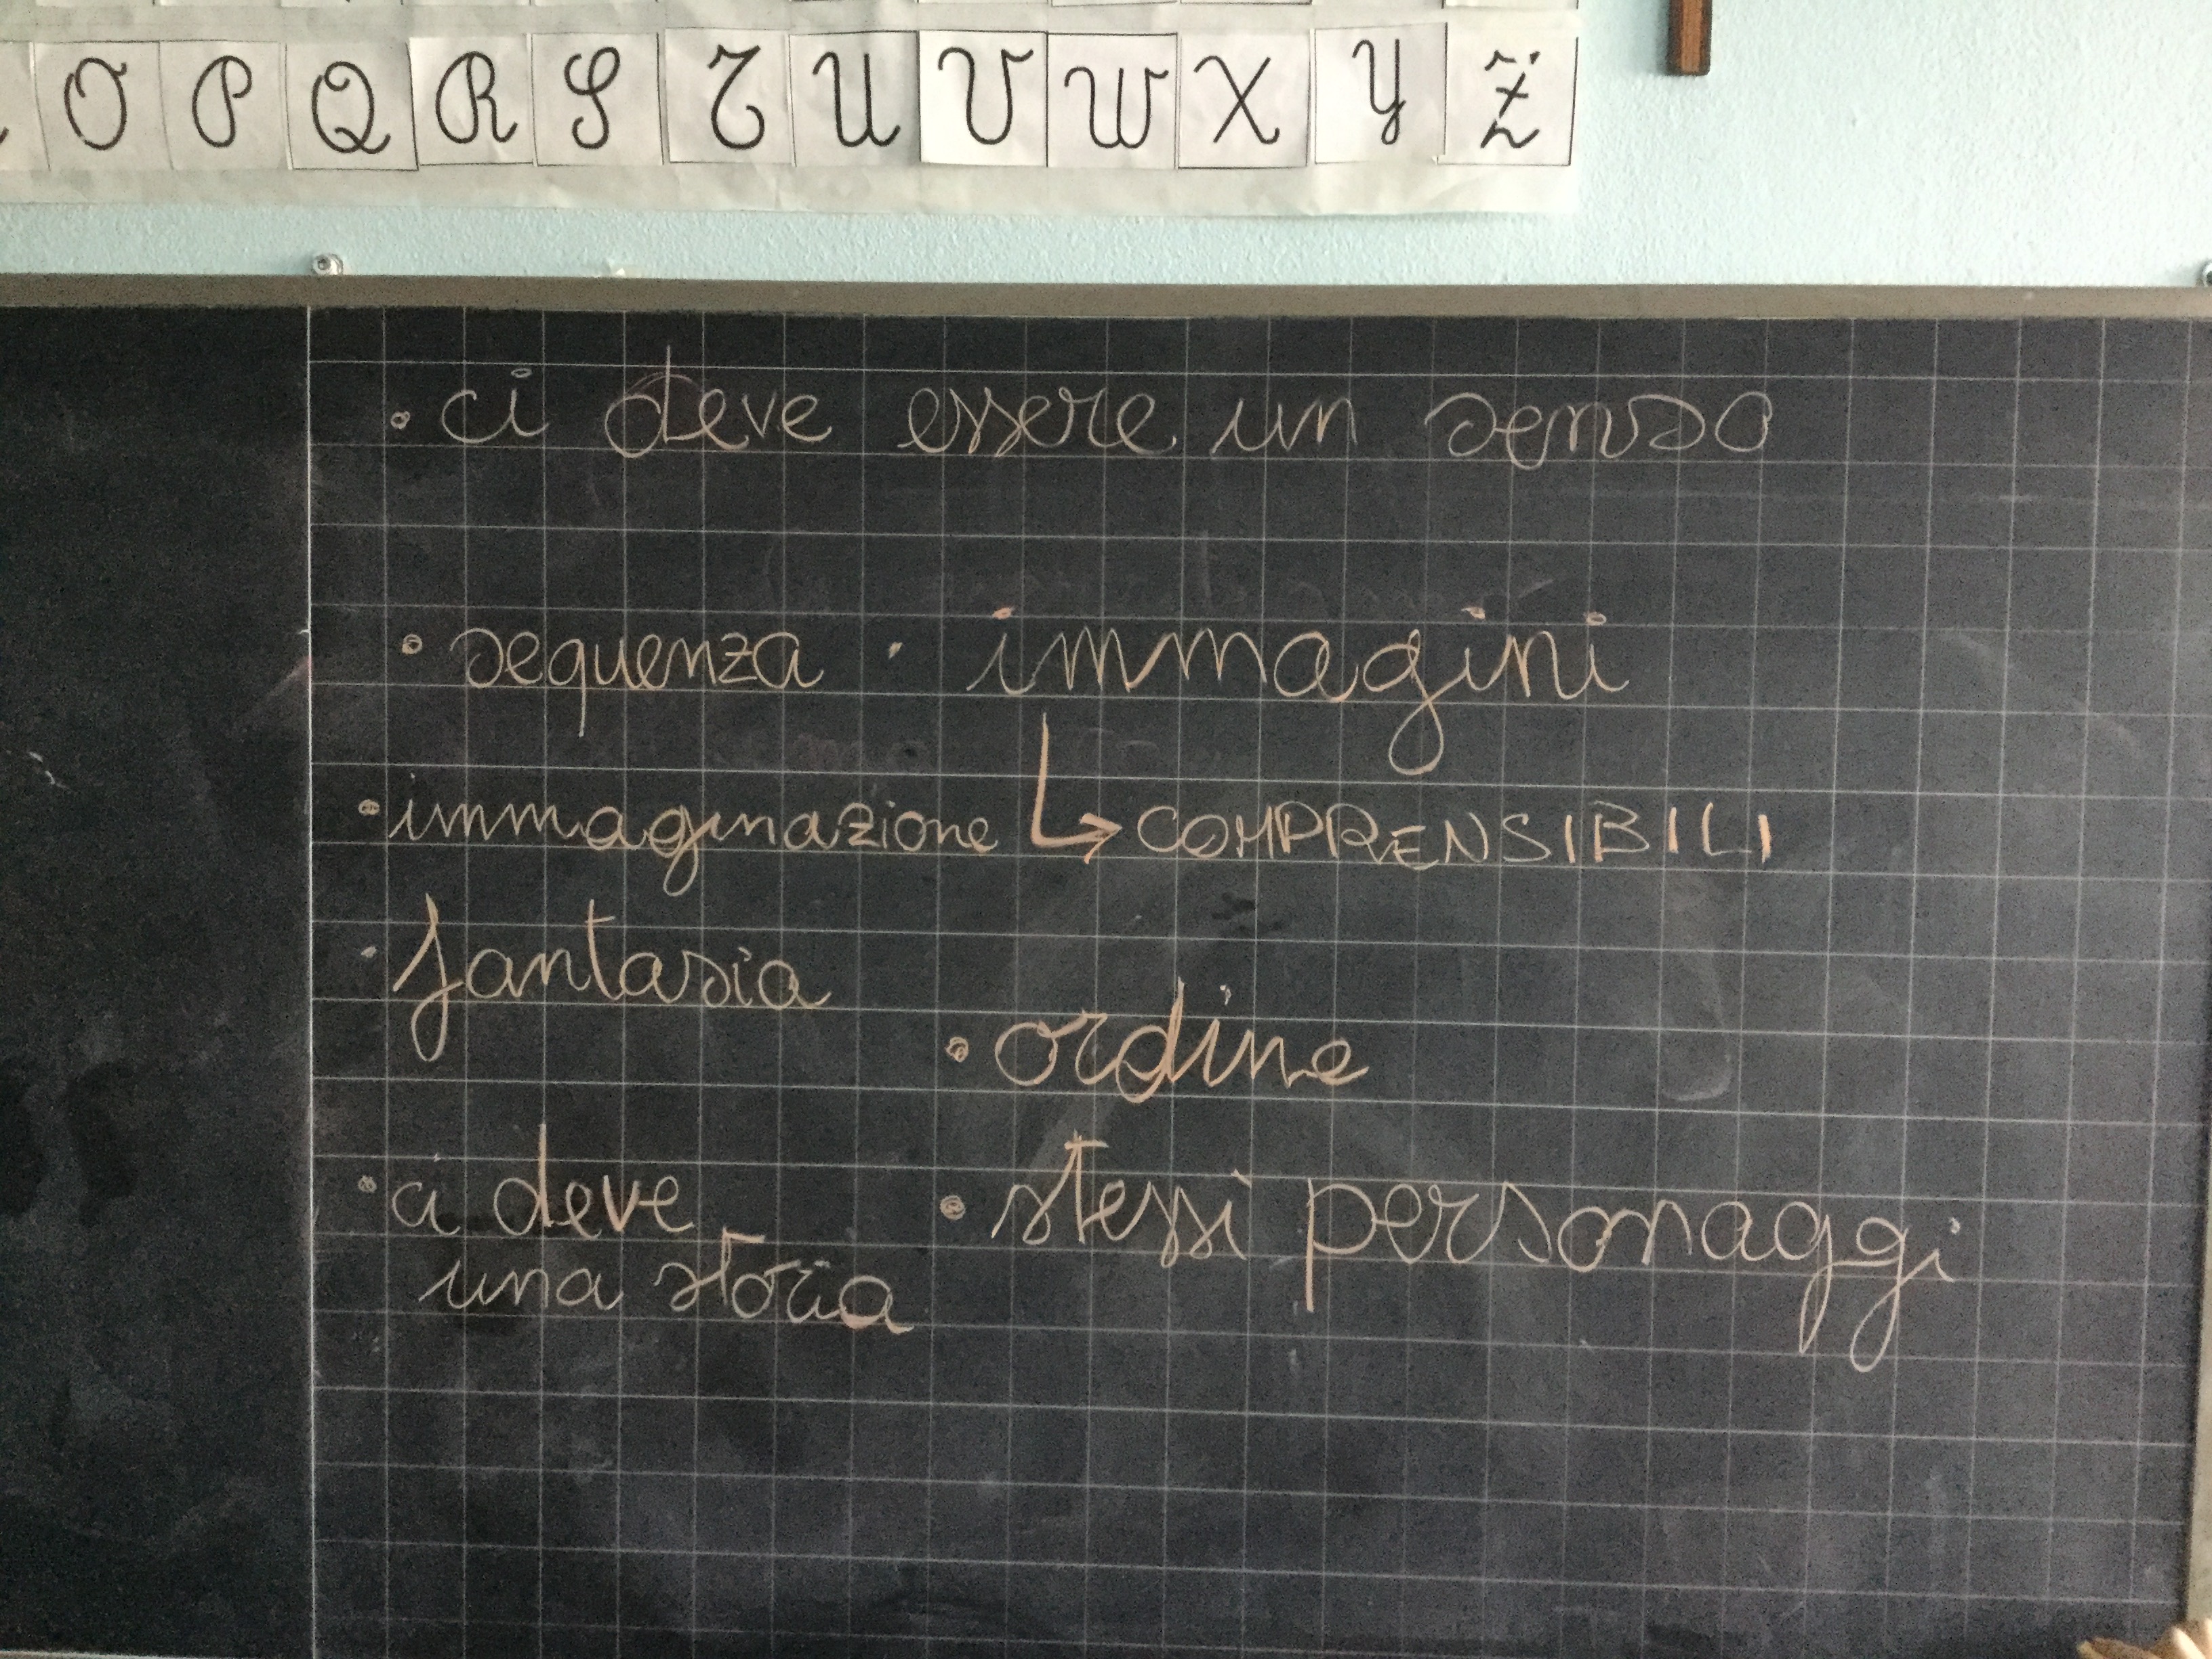 O P Q R S T U V W X Y Z
• ci deve essere un senso
• sequenza • immagini
• immaginazione ↳ COMPRENSIBILI
• fantasia
• ordine
• ci deve • stessi personaggi
una storia